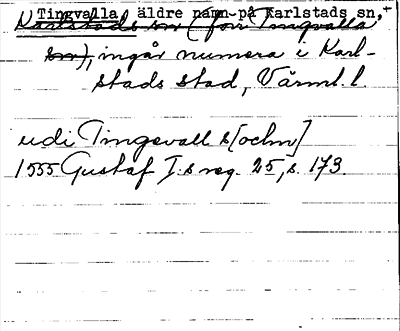 Tingvalla äldre namn på Karlstads sn,+
Karlstads sn (förr Tingvalla
sn), ingår numera i Karl-
stads stad, Värml. l.
udi Tingevall s[ochn]
1555 Gustaf I.s reg. 25, s. 173.